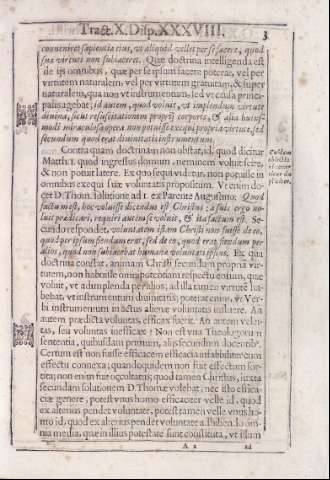 Tract. X. Disp. XXXVIII. 3
conveniret sapientia eius, vt aliquid vellet per se facere, quod
suæ virtuti non subiaceret. Quæ doctrina intelligenda est
de ijs omnibus, quæ per se ipsum facere poterat, vel per
virtutem naturalem, vel per virtutem gratuitam, & super
naturalem, qua non vt instrumentum, sed vt causa princi-
palis agebat; id autem, quod voluit, vt implendum virtute
divina, sicut resuscitationem proprij corporis, & alia huius-
modi miraculosa opera non potuisse ex qui propria virtute, sed
secundum quod erat divinitatis instrumentum.
Contra quam doctrinam non obstat, id, quod dicitur
Matth. quod ingressus domum, neminem voluit scire,
& non potuit latere. Ex quo sequi videtur, non potuisse in
omnibus exequi suæ voluntatis propositum. Vt enim do-
cet D. Thom. solutione ad 1. ex Parente Augustino: Quod
factum est, hoc voluisse dicendus est Christus: à suis ergo vo-
luit prædicari, requiri autem se voluit, & ita factum est. Se-
cundo respondet, voluntatem istam Christi non fuisse de eo,
quod per ipsum fiendum erat, sed de eo, quod erat fiendum per
alios, quod non subiacebat humanæ voluntati ipsius. Ex qua
doctrina constat, animam Christi secundum propriā vir-
tutem, non habuisse omnipotentiam respectu eorum, quæ
voluit, vt adimplenda per alios; ad illa tamen virtutē ha-
bebat, vt instrumentum divinitatis; poterat enim, vt Ver-
bi instrumentum in actus alienæ voluntatis influere. An
autem prædicta voluntas, efficax fuerit. An autem volun-
tas, seu voluntas inefficax? Non est vna Theologorum
sententia, quibusdam primum, alijs secundum docentibꝰ.
Certum est non fuisse efficacem efficacia infallibiliter cum
effectu connexa; quandoquidem non fuit effectum sor-
tita; non enim fuit occultatus; quod tamen Christus, iuxta
secundam solutionem D. Thomæ volebat, nec isto effica-
ciæ genere, potest vnus homo efficaciter velle id, quod
ex alterius pendet voluntate, potest tamen velle vnus ho-
mo id, quod ex alterius pendet voluntate adhibendo om-
nia media, quæ in illius potestate sunt constituta, vt illum
A 2 ad